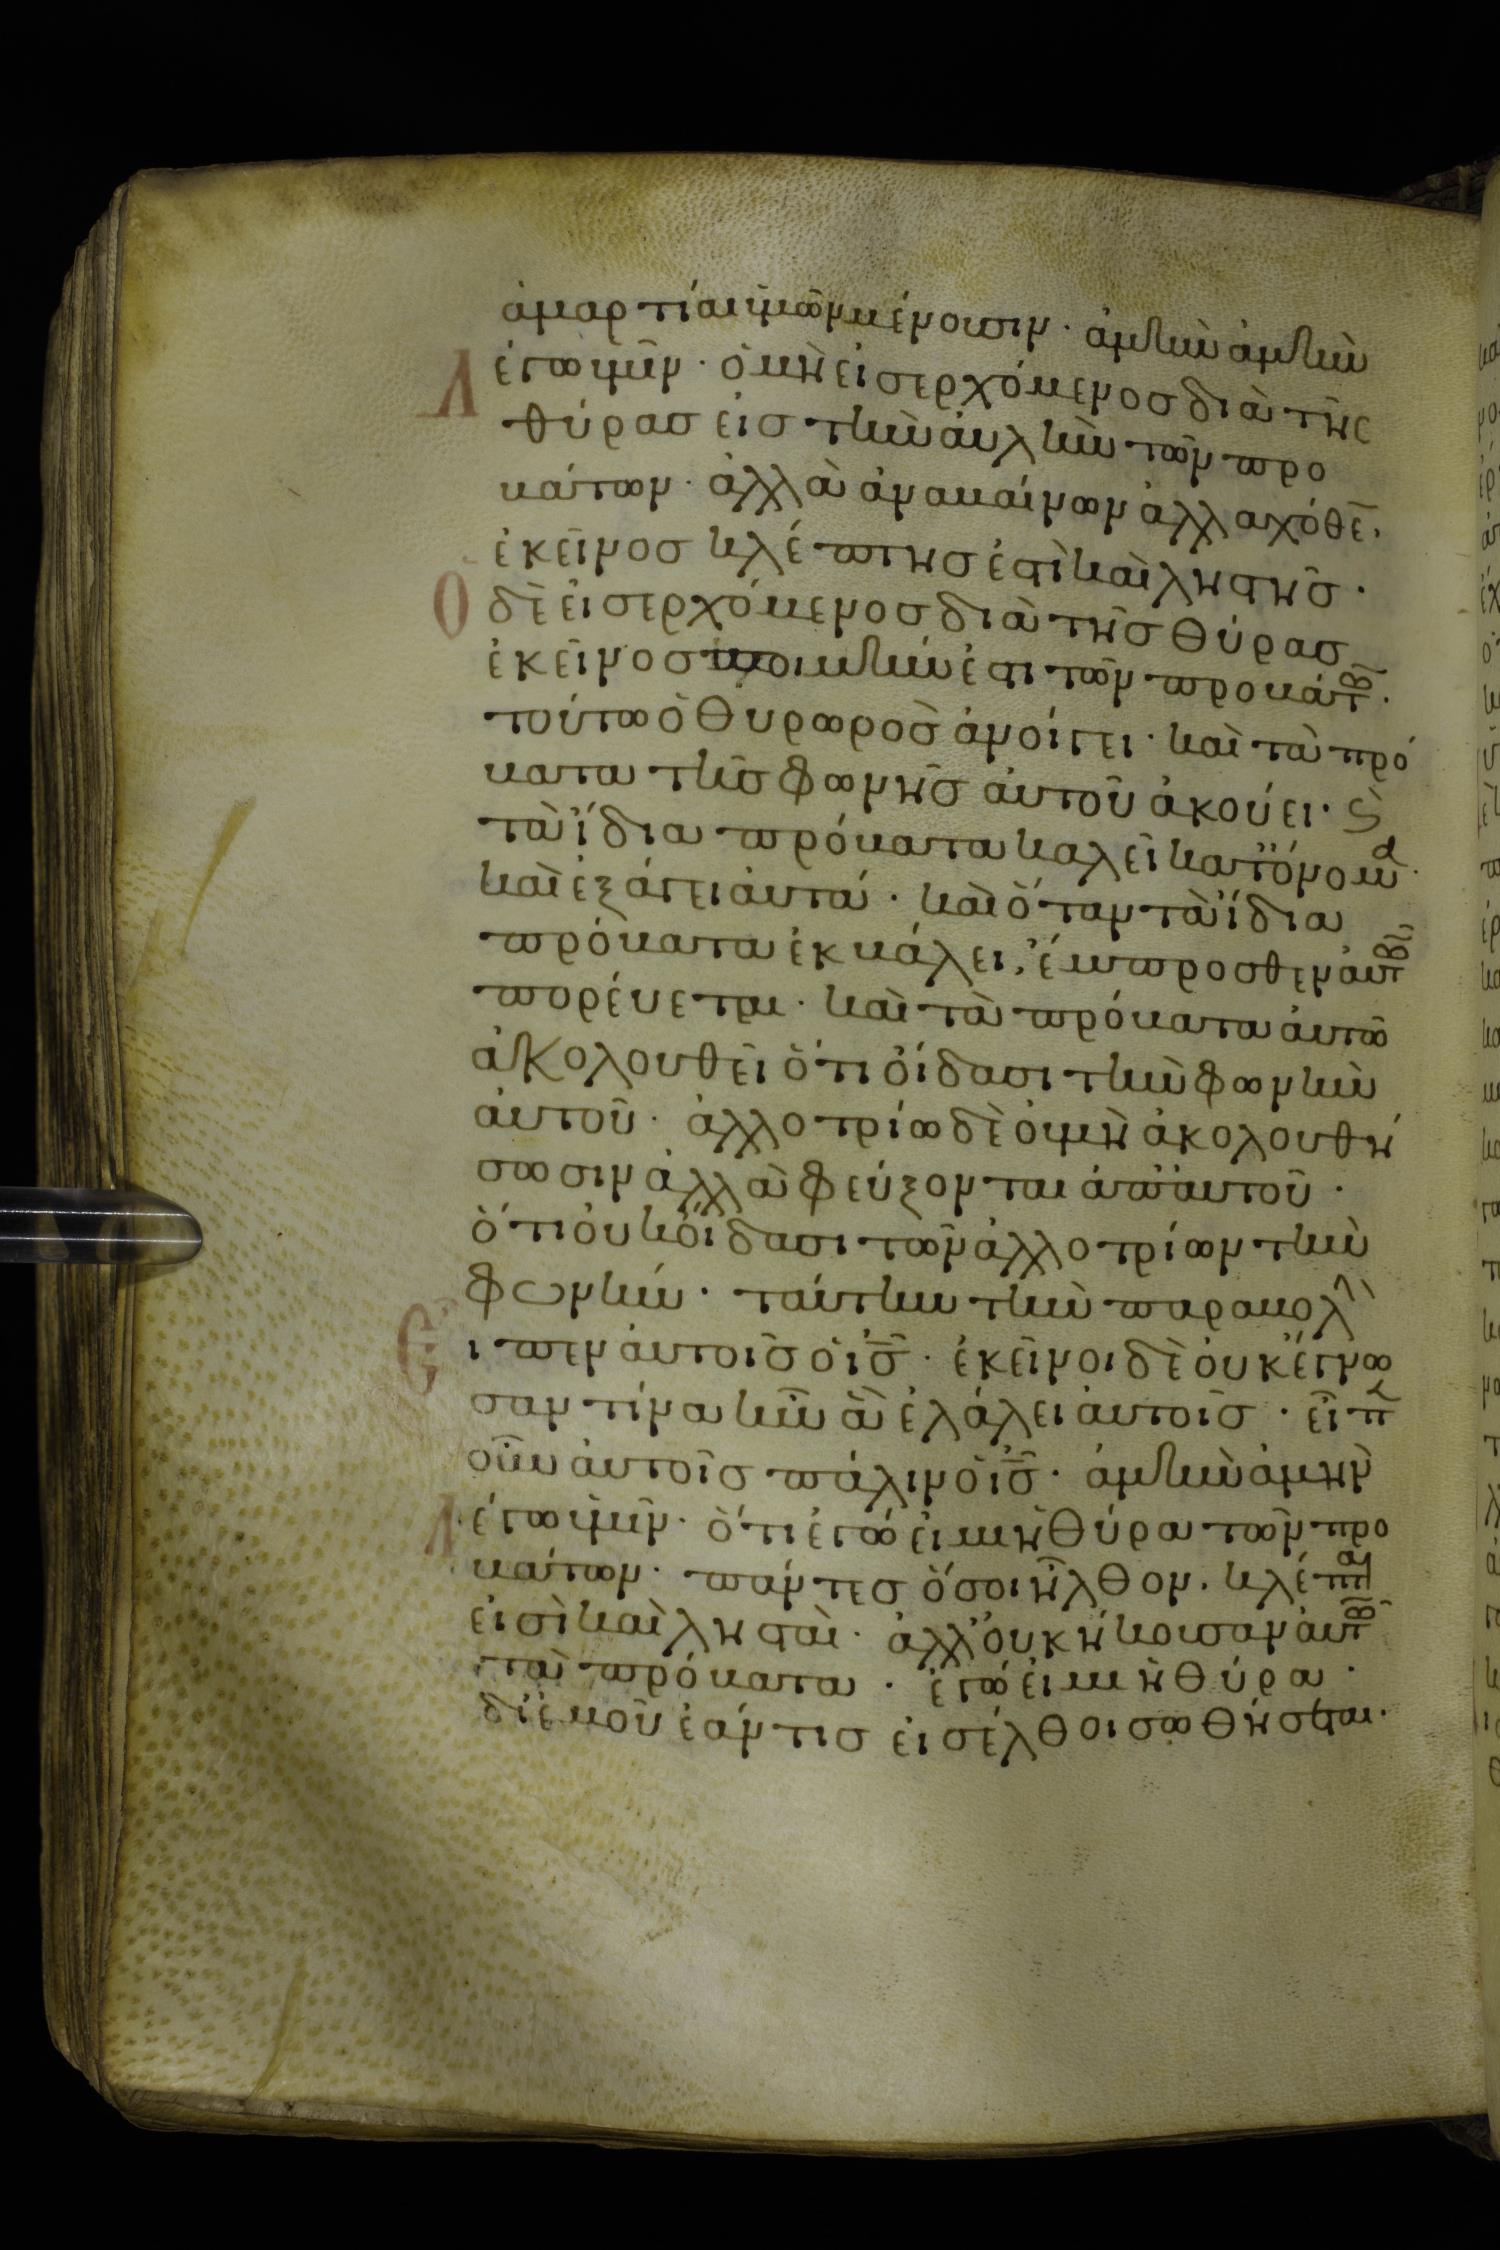 ἁμαρτίαι ὑμῶν μένουσιν · ἀμὴν ἀμὴν
Λέγω ὑμῖν · ὁ μὴ εἰσερχόμενος διὰ τῆς
θύρας εἰς τὴν αὐλὴν τῶν προ
βάτων · ἀλλὰ ἀναβαίνων ἀλλαχόθε̄ ·
ἐκεῖνος κλέπτης ἐστὶ καὶ λῃστῆς ·
Ὁ δὲ εἰσερχόμενος διὰ τῆς θύρας
ἐκεῖνος ποιμήν ἐστι τῶν προβάτ ·
τούτω ὁ θυρωρὸς ἀνοίγει · καὶ τὰ πρό
βατα τῆς φωνῆς αὐτοῦ ἀκούει · ϗ
τὰ ἴδια πρόβατα καλεῖ κατ' ὄνομα ·
καὶ ἐξάγει αὐτά · καὶ ὅταν τὰ ἴδια
πρόβατα ἐκβάλει, ἔμπροσθεν αὐτ
πορεύεται · καὶ τὰ πρόβατα αὐτῶ
ἀκολουθεῖ ὅτι οἴδασι τὴν φωνὴν
αὐτοῦ · ἀλλοτρίω δὲ οὐ μὴ ἀκολουθή
σωσιν ἀλλὰ φεύξονται ἀπ' αὐτοῦ ·
ὅτι οὐκ οἴδασι τῶν ἀλλοτρίων τὴν
φωνήν · ταύτην τὴν παραβολ
Εἶπεν αὐτοῖς ὁ ις̄ · ἐκεῖνοι δὲ οὐκ ἔγνω
σαν τίνα ἦν ἃ ἐλάλει αὐτοῖς · εἶπ
οὖν αὐτοῖς πάλιν ὁ ις̄ · ἀμὴν ἀμὴν
Λέγω ὑμῖν · ὅτι ἐγώ εἰμι ἡ θύρα τῶν προ
βάτων · πάντες ὅσοι ἦλθον · κλέπτ
εἰσὶ καὶ λῃσταὶ · ἀλλ' οὐκ ἤκουσαν αὐτ
τὰ πρόβατα · ἐγώ εἰμι ἡ θύρα ·
δι' ἐμοῦ ἐάν τις εἰσέλθοι σωθήσεται ·